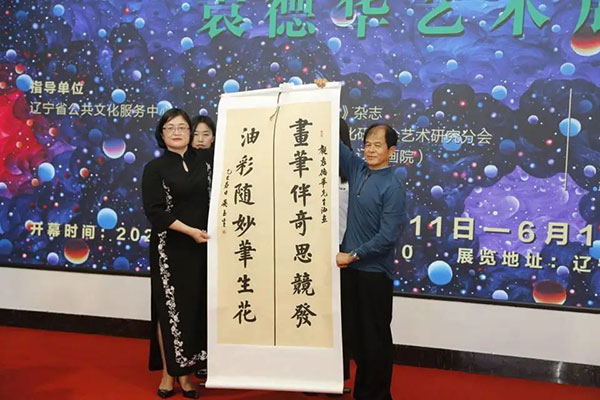 袁德华艺术展
指导单位
辽宁省公共文化服务中心
》杂志
艺术研究分会
画院）
畫筆伴奇思競發
油彩隨妙筆生花
11日—6月1
开幕时间：202
0 展览地址：辽宁